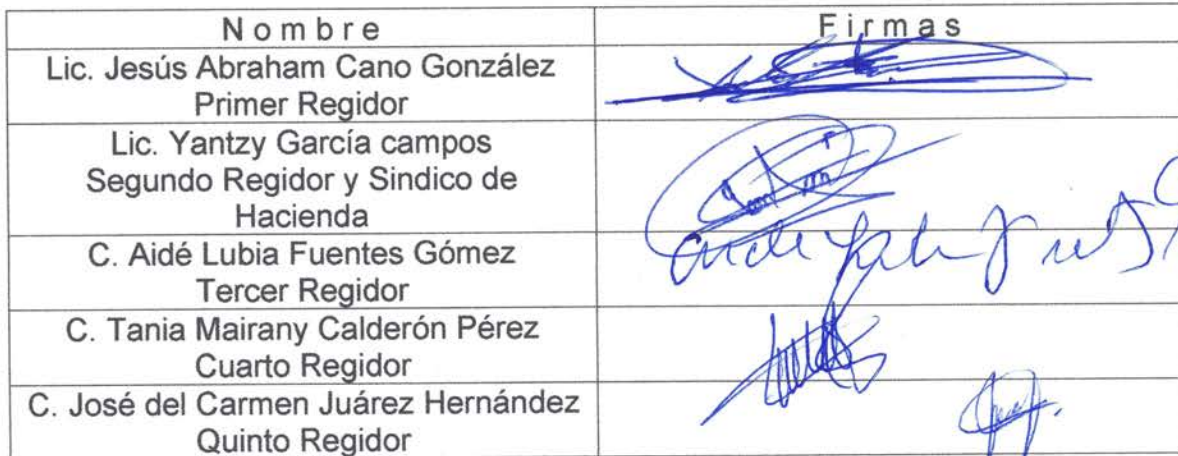 Nombre Firmas
Lic. Jesús Abraham Cano González
Primer Regidor
Lic. Yantzy García campos
Segundo Regidor y Sindico de
Hacienda
C. Aidé Lubia Fuentes Gómez
Tercer Regidor
C. Tania Mairany Calderón Pérez
Cuarto Regidor
C. José del Carmen Juárez Hernández
Quinto Regidor